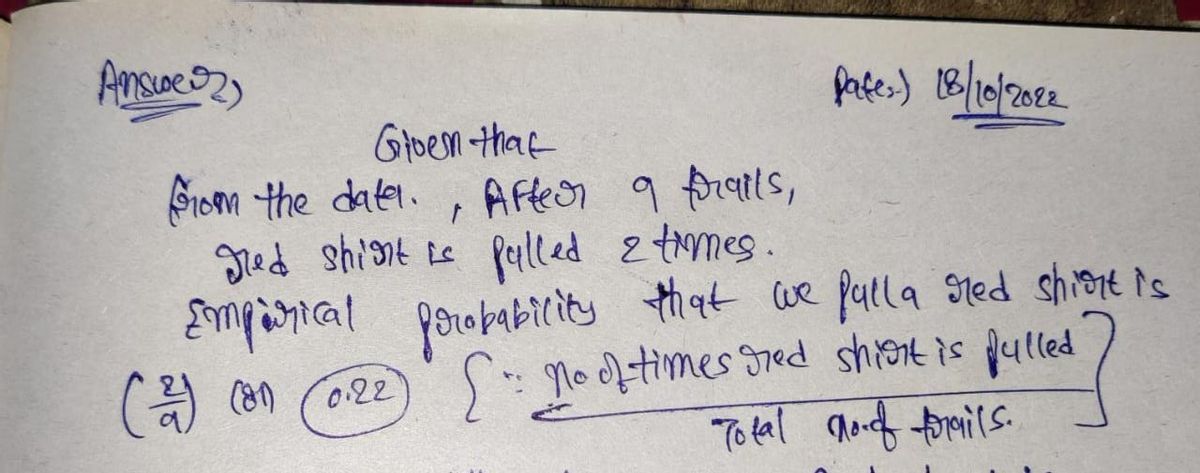 Answer,
Date:) 18/10/2022
Given that
from the data. , After 9 trails,
red shirt is pulled 2 times.
Empirical probability that we pull a red shirt is
(2/9) (or) 0.22 { ∵ no of times red shirt is pulled
Total no. of trails. }